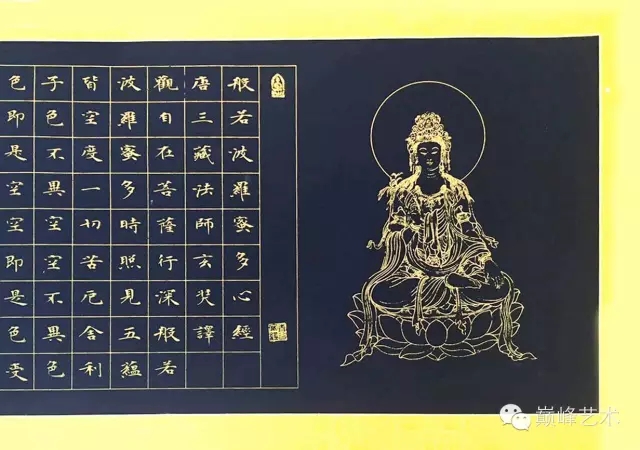 般若波羅蜜多心經
唐三藏法師玄奘譯
觀自在菩薩行深般若
波羅蜜多時照見五蘊
皆空度一切苦厄舍利
子色不異空空不異色
色即是空空即是色受
巅峰艺术